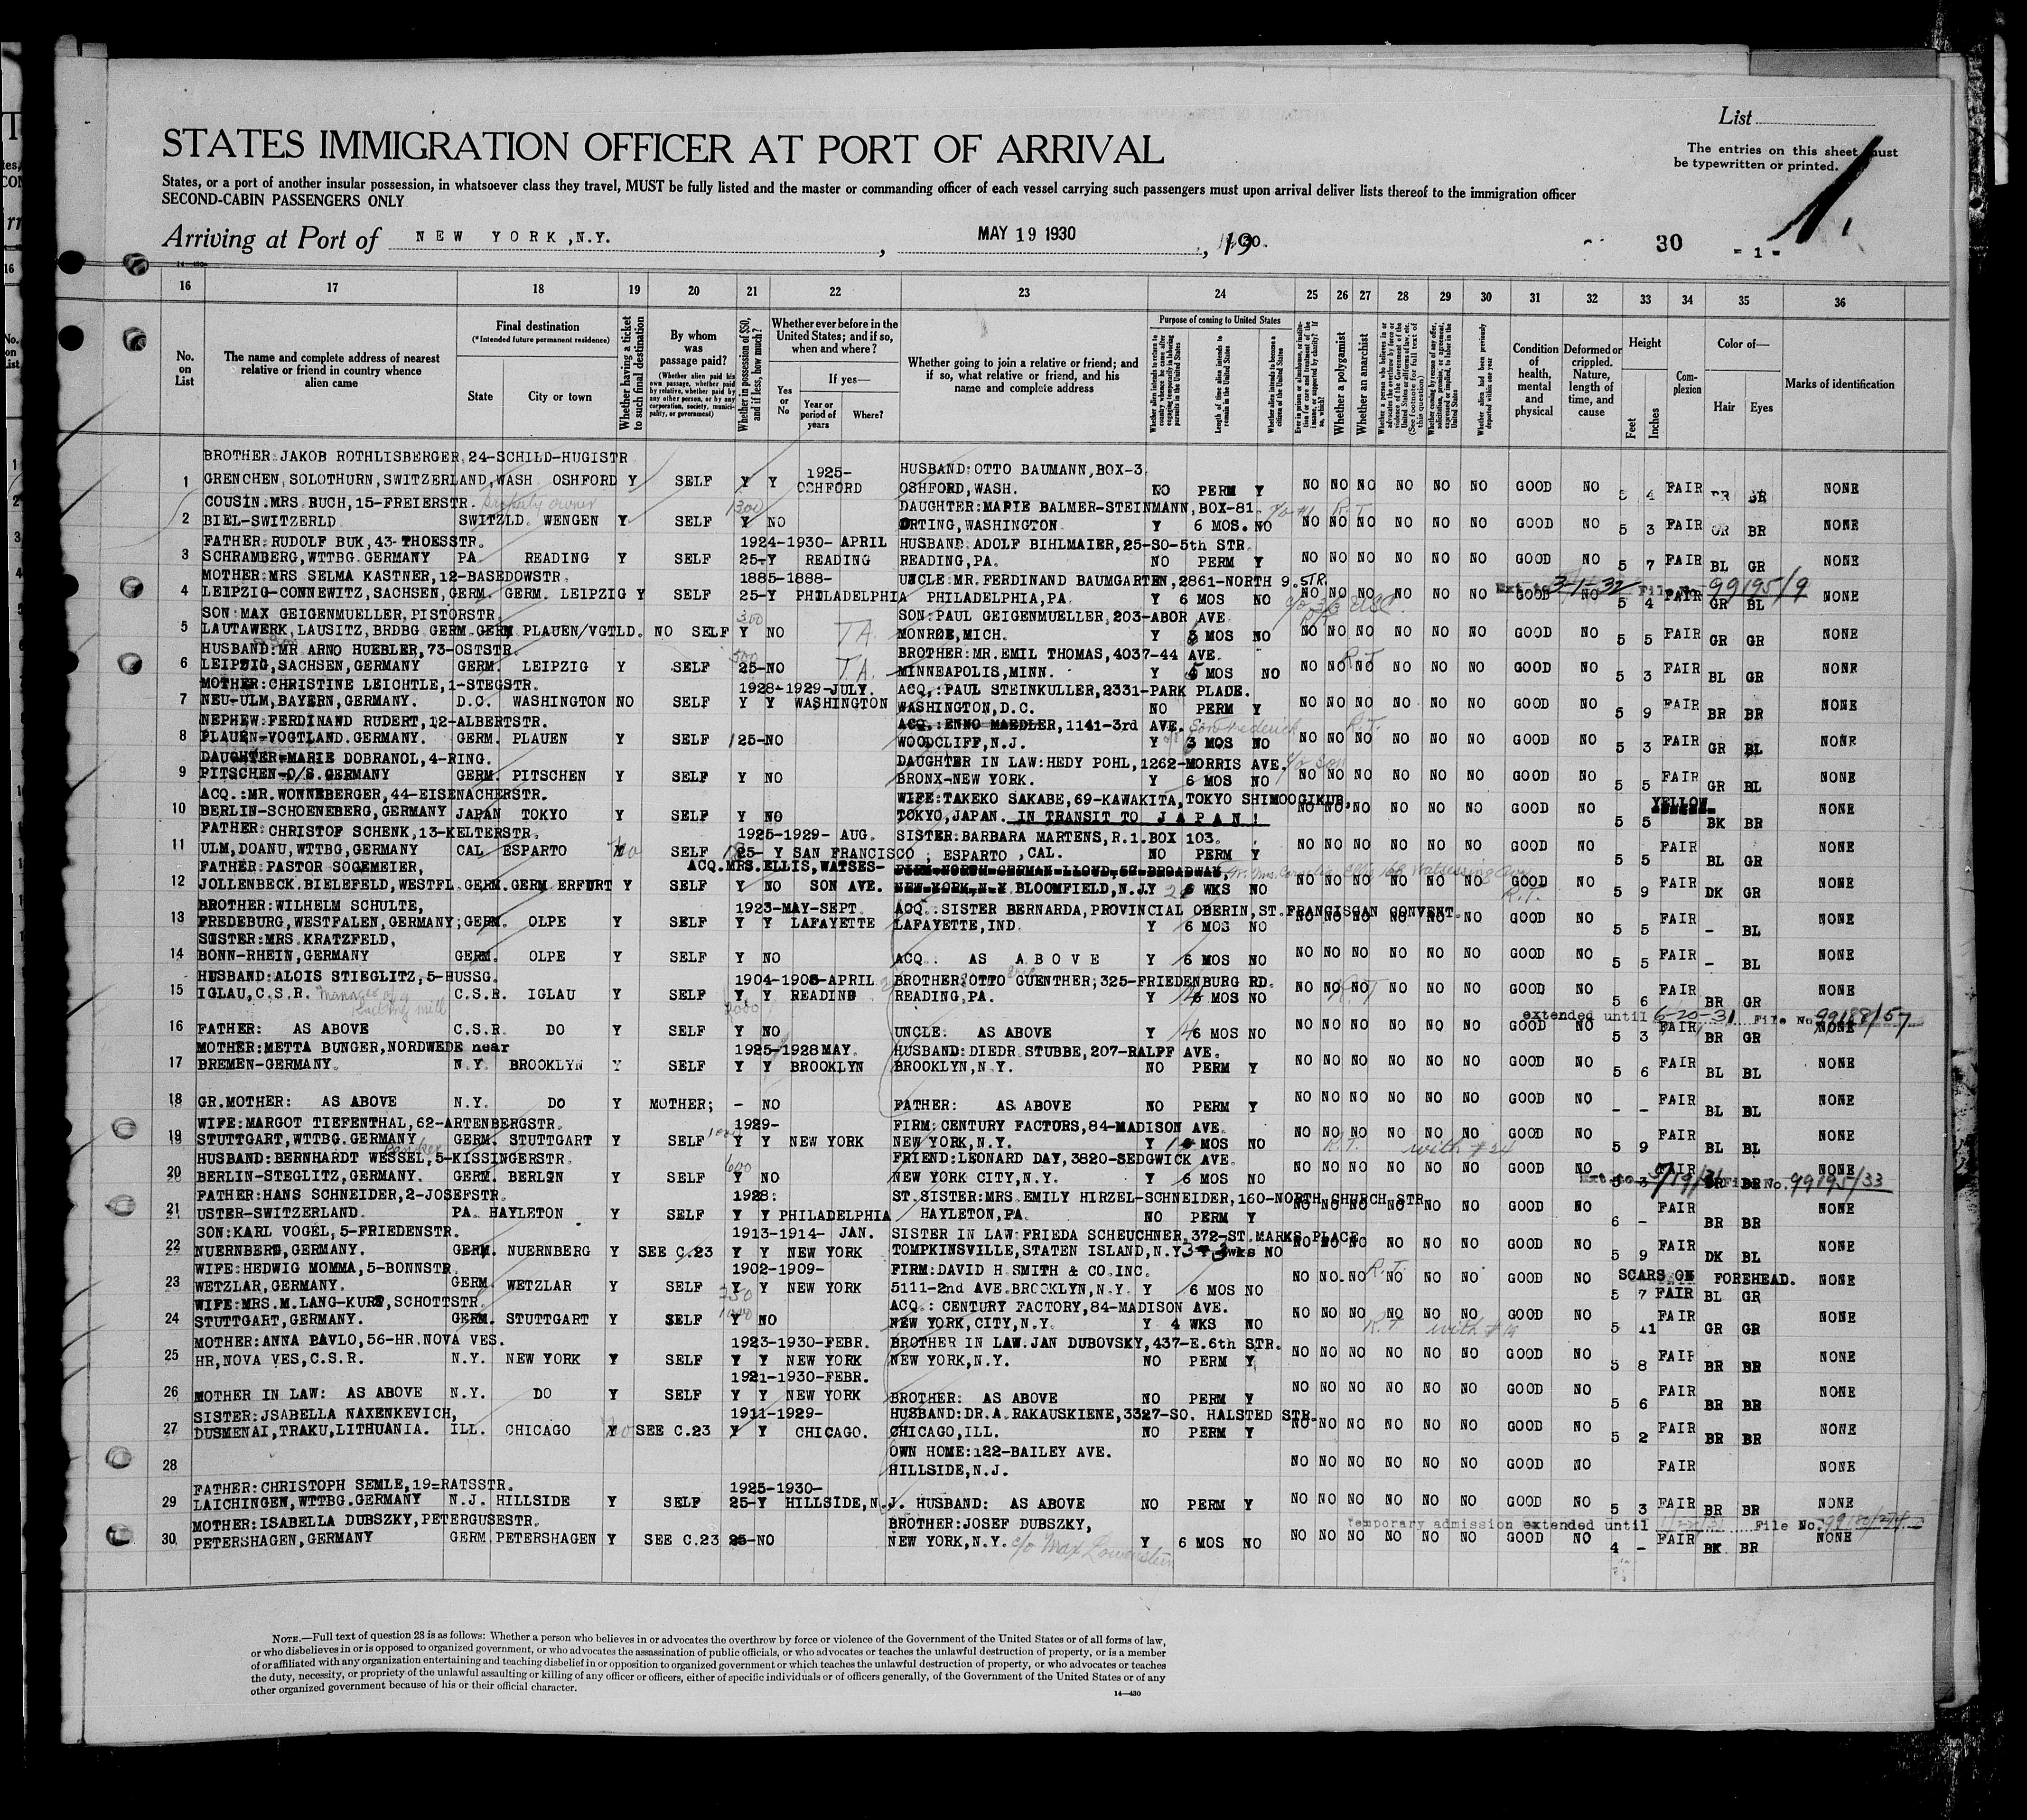 List
The entries on this sheet must
be typewritten or printed.
STATES IMMIGRATION OFFICER AT PORT OF ARRIVAL
States, or a port of another insular possession, in whatsoever class they travel, MUST be fully listed and the master or commanding officer of each vessel carrying such passengers must upon arrival deliver lists thereof to the immigration officer
SECOND-CABIN PASSENGERS ONLY
Arriving at Port of NEW YORK, N.Y. , MAY 19 1930 , 19 30 - 1 - 1.
16 17 18 19 20 21 22 23 24 25 26 27 28 29 30 31 32 33 34 35 36
No. on List
The name and complete address of nearest relative or friend in country whence alien came
Final destination (*Intended future permanent residence)
State City or town
Whether having a ticket to such final destination
By whom was passage paid? (Whether alien paid his own passage, whether paid by relative, whether paid by any other person, or by any corporation, society, municipality, or government)
Whether in possession of $50, and if less, how much?
Whether ever before in the United States; and if so, when and where?
Yes or No If yes— Year or period of years Where?
Whether going to join a relative or friend; and if so, what relative or friend, and his name and complete address
Purpose of coming to United States
Length of time alien intends to remain in the United States
Whether a polygamist
Whether an anarchist
Condition of health, mental and physical
Deformed or crippled. Nature, length of time, and cause
Height Feet Inches
Complexion
Color of— Hair Eyes
Marks of identification
BROTHER: JAKOB ROTHLISBERGER, 24-SCHILD-HUGISTR 1925- HUSBAND: OTTO BAUMANN, BOX-3.
1 GRENCHEN, SOLOTHURN, SWITZERLAND, WASH OSHFORD Y SELF Y Y OSHFORD OSHFORD, WASH. NO PERM Y NO NO NO NO NO NO GOOD NO 5 4 FAIR NONE
COUSIN: MRS. BUCH, 15-FREIERSTR. property owner 1300 DAUGHTER: MARIE BALMER-STEINMANN, BOX-81. R.T
2 BIEL-SWITZERLD SWITZLD. WENGEN Y SELF Y NO ORTING, WASHINGTON. Y 6 MOS. NO NO NO NO NO NO NO GOOD NO 5 3 FAIR GR BR NONE
FATHER: RUDOLF BUK, 43-THOESSTR. 1924-1930- APRIL HUSBAND: ADOLF BIHLMAIER, 25-SO-5th STR.
3 SCHRAMBERG, WTTBG. GERMANY PA. READING Y SELF 25-Y READING READING, PA. NO PERM Y NO NO NO NO NO NO GOOD NO 5 7 FAIR BL GR NONE
MOTHER: MRS SELMA KASTNER, 12-BASEDOWSTR. 1885-1888- UNCLE: MR. FERDINAND BAUMGARTEN, 2861-NORTH 9. STR. Ext. to 3-1-32 File No. 99195/9
4 LEIPZIG-CONNEWITZ, SACHSEN, GERM. GERM. LEIPZIG Y SELF 25-Y PHILADELPHIA PHILADELPHIA, PA. Y 6 MOS NO NO NO NO NO NO NO GOOD NO 5 4 FAIR GR BL NONE
SON: MAX GEIGENMUELLER, PISTORSTR. 300 SON: PAUL GEIGENMUELLER, 203-ABOR AVE.
5 LAUTAWERK, LAUSITZ, BRDBG GERM. GERM PLAUEN/VGTLD. NO SELF Y NO T.A. MONROE, MICH. Y 6 MOS NO NO NO NO NO NO NO GOOD NO 5 5 FAIR GR GR NONE
HUSBAND: MR ARNO HUEBLER, 73-OSTSTR. 500 BROTHER: MR. EMIL THOMAS, 4037-44 AVE. R.T
6 LEIPZIG, SACHSEN, GERMANY GERM. LEIPZIG Y SELF 25-NO T.A. MINNEAPOLIS, MINN. Y 5 MOS NO NO NO NO NO NO NO GOOD NO 5 3 FAIR BL GR NONE
MOTHER: CHRISTINE LEICHTLE, 1-STEGSTR. 1928-1929-JULY. ACQ,: PAUL STEINKULLER, 2331-PARK PLACE.
7 NEU-ULM, BAYERN, GERMANY. D.C. WASHINGTON NO SELF Y Y WASHINGTON WASHINGTON, D.C. NO PERM Y NO NO NO NO NO NO GOOD NO 5 9 FAIR BR BR NONE
NEPHEW: FERDINAND RUDERT, 12-ALBERTSTR. ACQ.: ENNO MAEDLER, 1141-3rd AVE. Son Frederick R.T.
8 PLAUEN-VOGTLAND. GERMANY. GERM. PLAUEN Y SELF 25-NO WOODCLIFF, N.J. Y 3 MOS NO NO NO NO NO NO NO GOOD NO 5 3 FAIR GR BL NONE
DAUGHTER=MARIE DOBRANOL, 4-RING. DAUGHTER IN LAW: HEDY POHL, 1262-MORRIS AVE. c/o son
9 PITSCHEN-O/S. GERMANY GERM. PITSCHEN Y SELF Y NO BRONX-NEW YORK. Y 6 MOS NO NO NO NO NO NO NO GOOD NO 5 5 FAIR GR BL NONE
ACQ.: MR. WONNEBERGER, 44-EISENACHERSTR. WIFE: TAKEKO SAKABE, 69-KAWAKITA, TOKYO SHIMOOGIKUB,
10 BERLIN-SCHOENEBERG, GERMANY JAPAN TOKYO Y SELF Y NO TOKYO, JAPAN. IN TRANSIT TO JAPAN! NO NO NO NO NO NO GOOD NO 5 5 YELLOW BK BR NONE
FATHER: CHRISTOF SCHENK, 13-KELTERSTR. 1925-1929- AUG. SISTER: BARBARA MARTENS, R.1. BOX 103.
11 ULM, DOANU, WTTBG, GERMANY CAL ESPARTO No SELF 25- Y SAN FRANCISCO ; ESPARTO, CAL. NO PERM Y NO NO NO NO NO NO GOOD NO 5 5 FAIR BL GR NONE
FATHER: PASTOR SOGEMEIER, ACQ. MRS. ELLIS, WATSES- FIRM NORTH GERMAN LLOYD, 57-BROADWAY,
12 JOLLENBECK. BIELEFELD, WESTFL. GERM. GERM ERFURT Y SELF Y NO SON AVE. NEW YORK, N.Y. BLOOMFIELD, N.J. Y 6 WKS NO NO NO NO NO NO NO GOOD NO R.T. 5 9 FAIR DK GR NONE
BROTHER: WILHELM SCHULTE, 1923-MAY-SEPT. ACQ.: SISTER BERNARDA, PROVINCIAL OBERIN, ST. FRANCISCAN CONVENT.
13 FREDEBURG, WESTFALEN, GERMANY; GERM. OLPE Y SELF Y Y LAFAYETTE LAFAYETTE, IND. Y 6 MOS NO NO NO NO NO NO NO GOOD NO 5 5 FAIR - BL NONE
SISTER: MRS. KRATZFELD,
14 BONN-RHEIN, GERMANY GERM. OLPE Y SELF Y NO ACQ.: AS ABOVE Y 6 MOS NO NO NO NO NO NO NO GOOD NO 5 5 FAIR - BL NONE
HUSBAND: ALOIS STIEGLITZ, 5-HUSSG. 1904-1905-APRIL BROTHER: OTTO GUENTHER; 325-FRIEDENBURG RD.
15 IGLAU, C.S.R. Manager of a knitting mill C.S.R. IGLAU Y SELF Y Y READING 2000 READING, PA. Y 6 MOS NO NO NO NO NO NO NO R.T GOOD NO 5 6 FAIR BR GR NONE
extended until 6-20-31 File No. 99188/57
16 FATHER: AS ABOVE C.S.R. DO Y SELF Y NO UNCLE: AS ABOVE Y 6 MOS NO NO NO NO NO NO NO GOOD NO 5 3 FAIR BR GR NONE
MOTHER: METTA BUNGER, NORDWEDE near 1925-1928 MAY. HUSBAND: DIEDR. STUBBE, 207-RALPF AVE.
17 BREMEN-GERMANY. N.Y. BROOKLYN Y SELF Y Y BROOKLYN BROOKLYN, N.Y. NO PERM Y NO NO NO NO NO NO GOOD NO 5 6 FAIR BL BL NONE
18 GR. MOTHER: AS ABOVE N.Y. DO Y MOTHER; - NO FATHER: AS ABOVE NO PERM Y NO NO NO NO NO NO GOOD NO - - FAIR BL BL NONE
WIFE: MARGOT TIEFENTHAL, 62-ARTENBERGSTR. 1929- FIRM: CENTURY FACTURS, 84-MADISON AVE.
19 STUTTGART, WTTBG. GERMANY GERM. STUTTGART Y SELF 1000 Y Y NEW YORK NEW YORK, N.Y. Y MOS NO NO NO NO NO NO NO R.T. with #24 GOOD NO 5 9 FAIR BL BL NONE
HUSBAND: BERNHARDT WESSEL, 5-KISSINGERSTR. Banker 600 FRIEND: LEONARD DAY, 3820-SEDGWICK AVE.
20 BERLIN-STEGLITZ, GERMANY. GERM. BERLIN Y SELF Y NO NEW YORK CITY, N.Y. Y 6 MOS NO NO NO NO NO NO NO GOOD NO 5 3 FAIR BR BR NONE Ext. to File No. 99195/33
FATHER: HANS SCHNEIDER, 2-JOSEFSTR. 1928: ST. SISTER: MRS. EMILY HIRZEL-SCHNEIDER, 160-NORTH CHURCH STR
21 USTER-SWITZERLAND. PA. HAYLETON Y SELF Y Y PHILADELPHIA HAYLETON, PA. NO PERM Y NO NO NO NO NO NO GOOD NO 6 - FAIR BR BR NONE
SON: KARL VOGEL, 5-FRIEDENSTR. 1913-1914- JAN. SISTER IN LAW: FRIEDA SCHEUCHNER, 372-ST. MARKS PLACE
22 NUERNBERG, GERMANY. GERM. NUERNBERG Y SEE C.23 Y Y NEW YORK TOMPKINSVILLE, STATEN ISLAND, N.Y. 3 wks NO NO NO NO NO NO NO GOOD NO 5 9 FAIR DK BL NONE
WIFE: HEDWIG MOMMA, 5-BONNSTR. 1902-1909- FIRM: DAVID H. SMITH & CO. INC. R.T.
23 WETZLAR, GERMANY. GERM. WETZLAR Y SELF Y Y NEW YORK 5111-2nd AVE. BROOKLYN, N.Y. Y 6 MOS NO NO NO NO NO NO NO GOOD NO SCARS ON FOREHEAD. 5 7 FAIR BL GR NONE
WIFE: MRS. M. LANG-KURZ, SCHOTTSTR. ACQ.: CENTURY FACTORY, 84-MADISON AVE.
24 STUTTGART, GERMANY. GERM. STUTTGART Y SELF Y NO NEW YORK, CITY, N.Y. Y 4 WKS NO NO NO NO NO NO NO R.T with #19 GOOD NO 5 11 FAIR GR GR NONE
MOTHER: ANNA PAVLO, 56-HR. NOVA VES. 1923-1930-FEBR. BROTHER IN LAW. JAN DUBOVSKY, 437-E. 6th STR.
25 HR, NOVA VES, C.S.R. N.Y. NEW YORK Y SELF Y Y NEW YORK NEW YORK, N.Y. NO PERM Y NO NO NO NO NO NO GOOD NO 5 8 FAIR BR BR NONE
1921-1930-FEBR.
26 MOTHER IN LAW: AS ABOVE N.Y. DO Y SELF Y Y NEW YORK BROTHER: AS ABOVE NO PERM Y NO NO NO NO NO NO GOOD NO 5 6 FAIR BR BR NONE
SISTER: JSABELLA NAXENKEVICH, 1911-1929- HUSBAND: DR. A. RAKAUSKIENE, 3327-SO. HALSTED STR.
27 DUSMENAI, TRAKU, LITHUANIA. ILL. CHICAGO No SEE C.23 Y Y CHICAGO. CHICAGO, ILL. NO PERM Y NO NO NO NO NO NO GOOD NO 5 2 FAIR BR BR NONE
OWN HOME: 122-BAILEY AVE.
28 HILLSIDE, N.J. NO NO NO NO NO NO GOOD NO FAIR NONE
FATHER: CHRISTOPH SEMLE, 19=RATSSTR. 1925-1930-
29 LAICHINGEN, WTTBG. GERMANY N.J. HILLSIDE Y SELF 25-Y HILLSIDE, N.J. HUSBAND: AS ABOVE NO PERM Y NO NO NO NO NO NO GOOD NO 5 3 FAIR BR BR NONE
MOTHER: ISABELLA DUBSZKY, PETERGUSESTR. BROTHER: JOSEF DUBSZKY, Temporary admission extended until File No.
30 PETERSHAGEN, GERMANY GERM. PETERSHAGEN Y SEE C.23 25-NO NEW YORK, N.Y. c/o Max Lowenstein Y 6 MOS NO NO NO NO NO NO NO GOOD NO 4 - FAIR BK BR NONE
NOTE.—Full text of question 28 is as follows: Whether a person who believes in or advocates the overthrow by force or violence of the Government of the United States or of all forms of law,
or who disbelieves in or is opposed to organized government, or who advocates the assassination of public officials, or who advocates or teaches the unlawful destruction of property, or is a member
of or affiliated with any organization entertaining and teaching disbelief in or opposition to organized government or which teaches the unlawful destruction of property, or who advocates or teaches
the duty, necessity, or propriety of the unlawful assaulting or killing of any officer or officers, either of specific individuals or of officers generally, of the Government of the United States or of any
other organized government because of his or their official character.
14—430